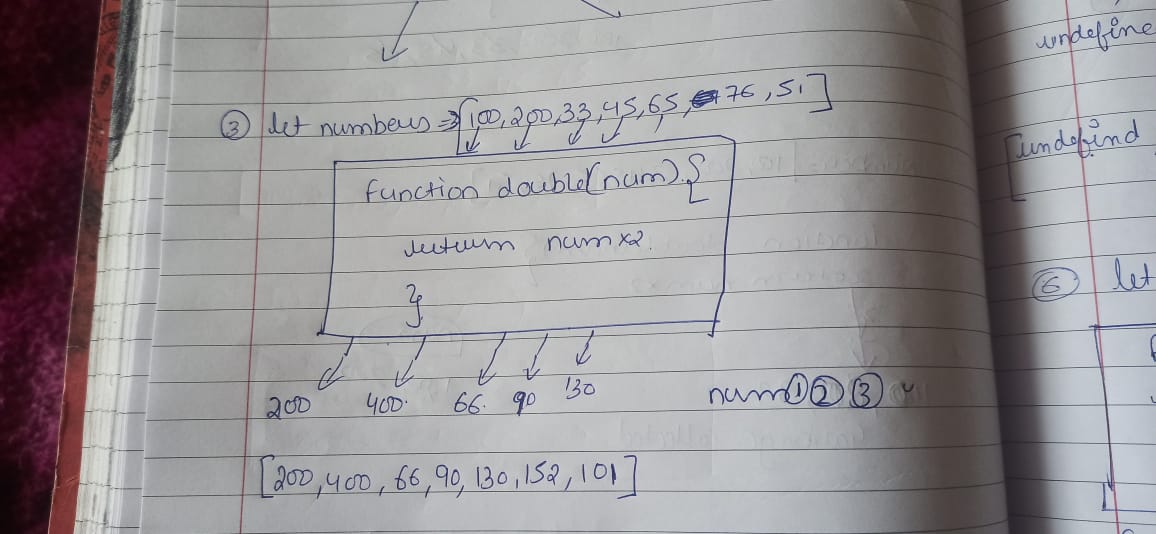 ③ let numbers = [100, 200, 33, 45, 65, 76, 51]
function double(num) {
return num x2.
}
200 400 66 90 130
num ① ② ③
[200, 400, 66, 90, 130, 152, 101]
undefine
[undefind
⑥ let